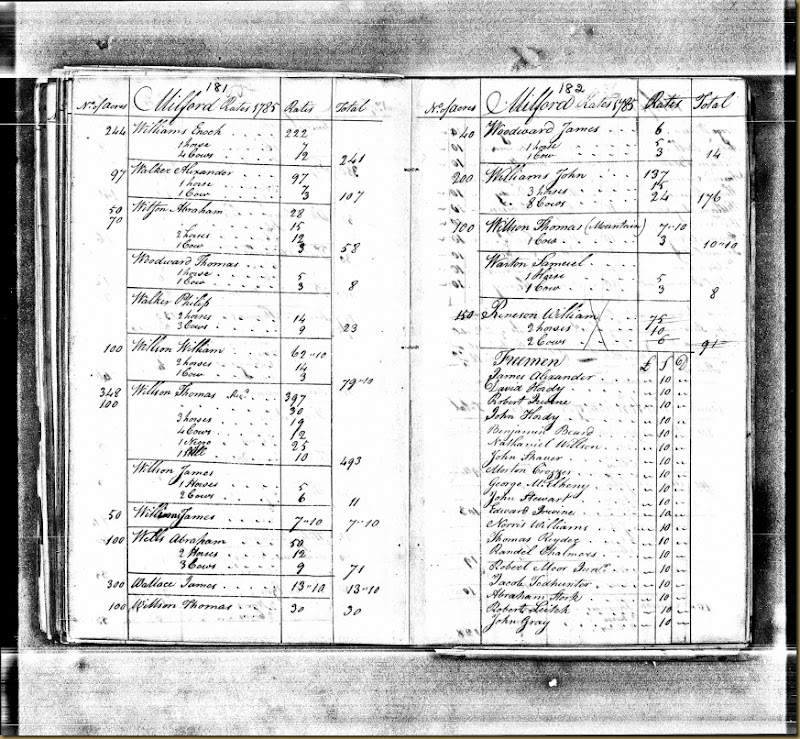 181
No. of Acres Milford Rates 1785 Rates Total
244 Williams Enoch 222
1 horse 7
4 Cows 12 241
97 Walker Alexander 97
1 horse 7
1 Cow 3 107
50 Willson Abraham 28
70 15
2 horses 12
1 Cow 3 58
Woodward Thomas
1 horse 5
1 Cow 3 8
Walker Philip
2 horses 14
3 Cows 9 23
100 Willson William 62-10
2 horses 14
1 Cow 3 79-10
348 Willson Thomas 397
100 30
3 horses 19
4 Cows 12
1 Negro 25
1 Still 10 493
Willson James
1 Horse 5
2 Cows 6 11
50 Williams James 7-10 7-10
100 Wells Abraham 50
2 Horses 12
3 Cows 9 71
300 Wallace James 13-10 13-10
100 Willson Thomas 30 30
182
No. of Acres Milford Rates 1785 Rates Total
40 Woodward James 6
1 horse 5
1 Cow 3 14
200 Williams John 137
3 horses 15
8 Cows 24 176
100 Willson Thomas (Mountain) 7-10
1 Cow 3 10-10
Warton Samuel
1 Horse 5
1 Cow 3 8
150 Reneson William 75
2 horses 10
2 Cows 6 91
Freemen £ S D
James Alexander 10
David Hardy 10
Robert Irwine 10
John Hardy 10
Benjamin Beard 10
Nathaniel Willson 10
John Shaver 10
Morton Crozzer 10
George McElheny 10
John Stewart 10
Edward Irwine 10
Norris Williams 10
Thomas 10
Randel Chalmers 10
Robert Moor Junr. 10
Jacob Todhunter 10
Abraham Stork 10
Robert Leitch 10
John Gray 10